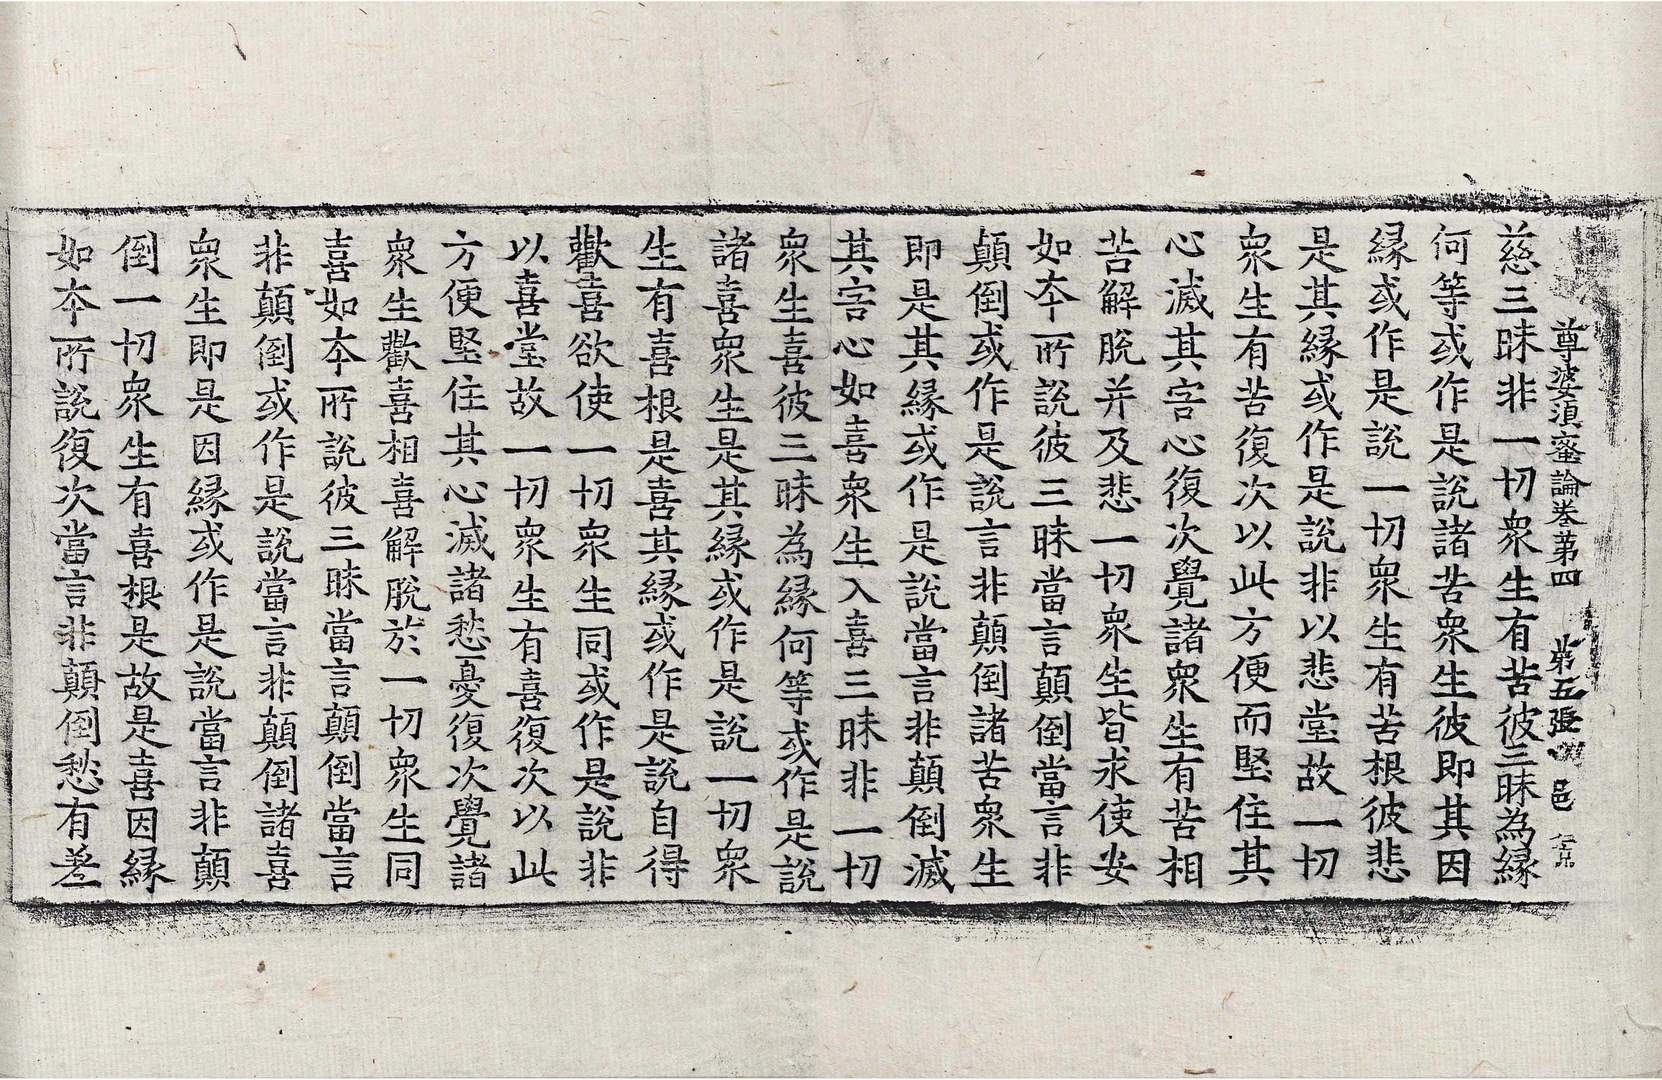 尊婆湏蜜論卷第四 第五張 邑
慈三昧非一切衆生有苦彼三昧為縁
何等或作是說諸苦衆生彼即其因
縁或作是說一切衆生有苦根彼悲
是其縁或作是說非以悲堂故一切
衆生有苦復次以此方便而堅住其
心滅其害心復次覺諸衆生有苦相
苦解脫并及悲一切衆生皆求使安
如夲所說彼三昧當言顛倒當言非
顛倒或作是說言非顛倒諸苦衆生
即是其縁或作是說當言非顛倒滅
其害心如喜衆生入喜三昧非一切
衆生喜彼三昧為縁何等或作是說
諸喜衆生是其縁或作是說一切衆
生有喜根是喜其縁或作是說自得
歡喜欲使一切衆生同或作是說非
以喜堂故一切衆生有喜復次以此
方便堅住其心滅諸愁憂復次覺諸
衆生歡喜相喜解脫於一切衆生同
喜如夲所說彼三昧當言顛倒當言
非顛倒或作是說當言非顛倒諸喜
衆生即是因縁或作是說當言非顛
倒一切衆生有喜根是故是喜因縁
如夲所說復次當言非顛倒愁有差